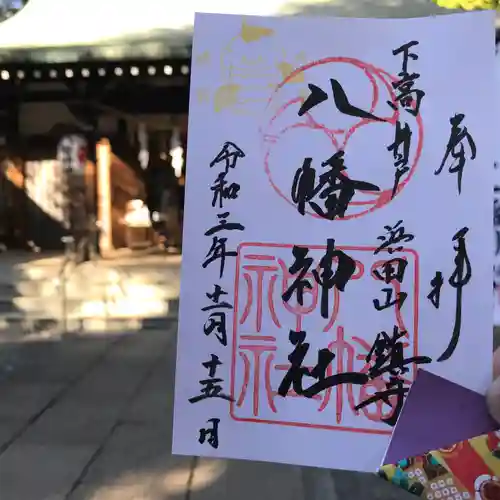 奉拝
下高井戸
浜田山鎮守
八幡神社
令和三年十一月十五日